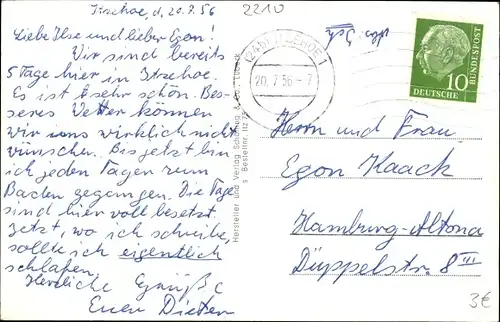 Itzehoe, d. 20.7.56
Liebe Ilse und lieber Egon!
Wir sind bereits
5 Tage hier in Itzehoe.
Es ist sehr schön. Bes-
seres Wetter können
wir uns wirklich nicht
wünschen. Bis jetzt bin
ich jeden Tagen zum
Baden gegangen. Die Tage
sind hier voll besetzt.
Jetzt, wo ich schreibe,
sollte ich eigentlich
schlafen.
Herzliche Grüße
Euer Dieter
2210
Hersteller und Verlag
Bestellnr. Itz
(24b) ITZEHOE 1
20.7.56-7
10
DEUTSCHE
BUNDESPOST
Herrn und Frau
Egon Kaack
Hamburg-Altona
Düppelstr. 8 III
3€